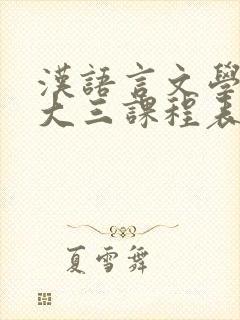 漢語言文學
大三課程表
夏雪舞